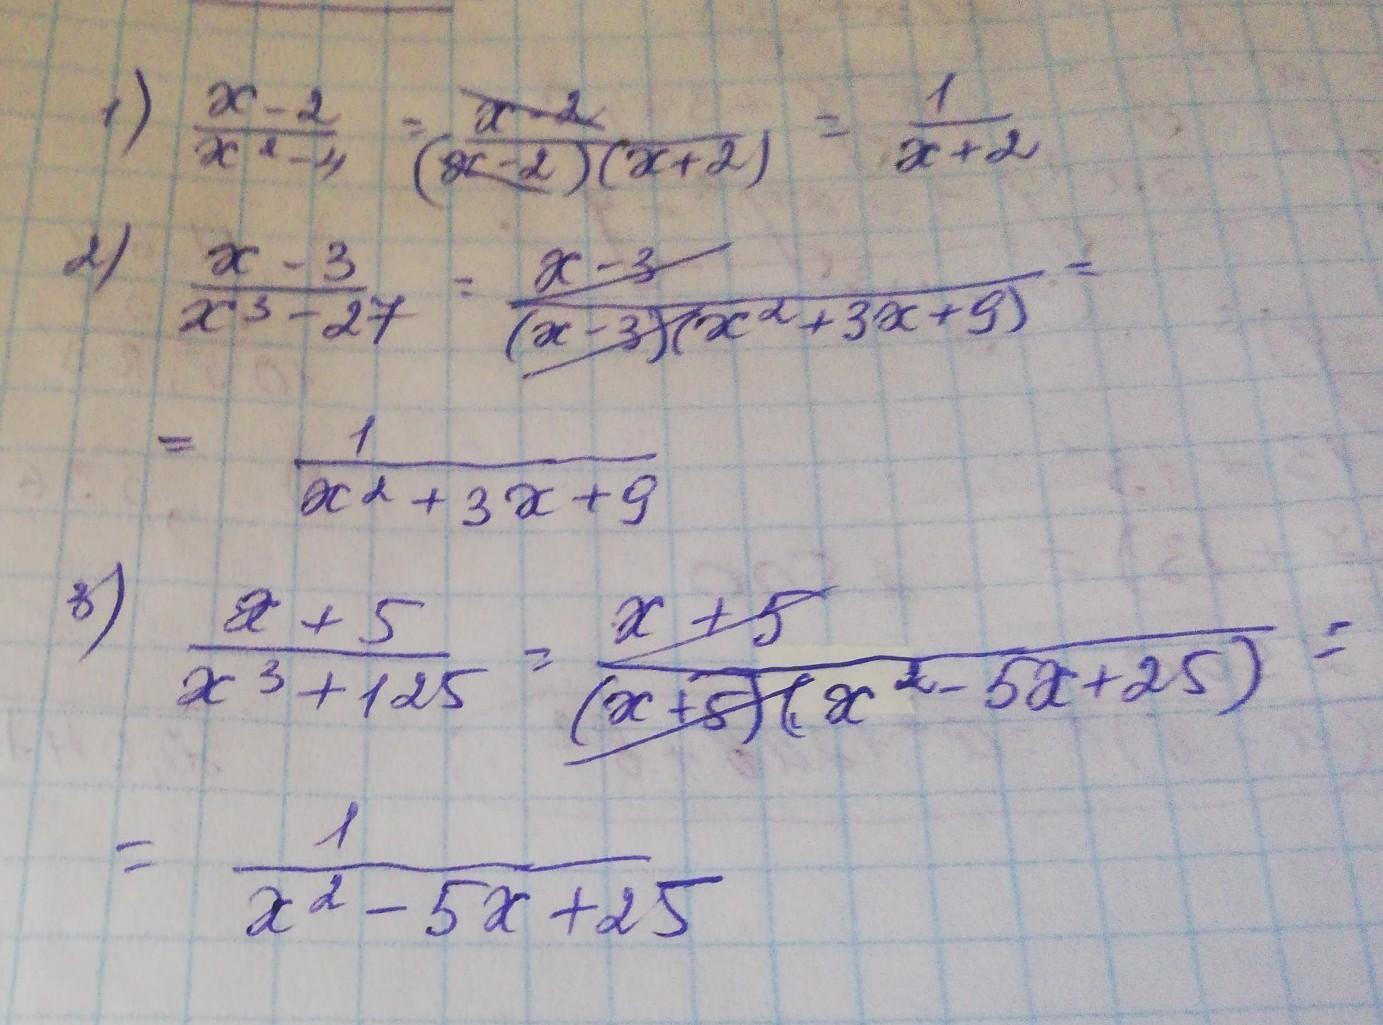 1) (x-2)/(x²-4) = (x-2)/((x-2)(x+2)) = 1/(x+2)
2) (x-3)/(x³-27) = (x-3)/((x-3)(x²+3x+9)) =
= 1/(x²+3x+9)
3) (x+5)/(x³+125) = (x+5)/((x+5)(x²-5x+25)) =
= 1/(x²-5x+25)